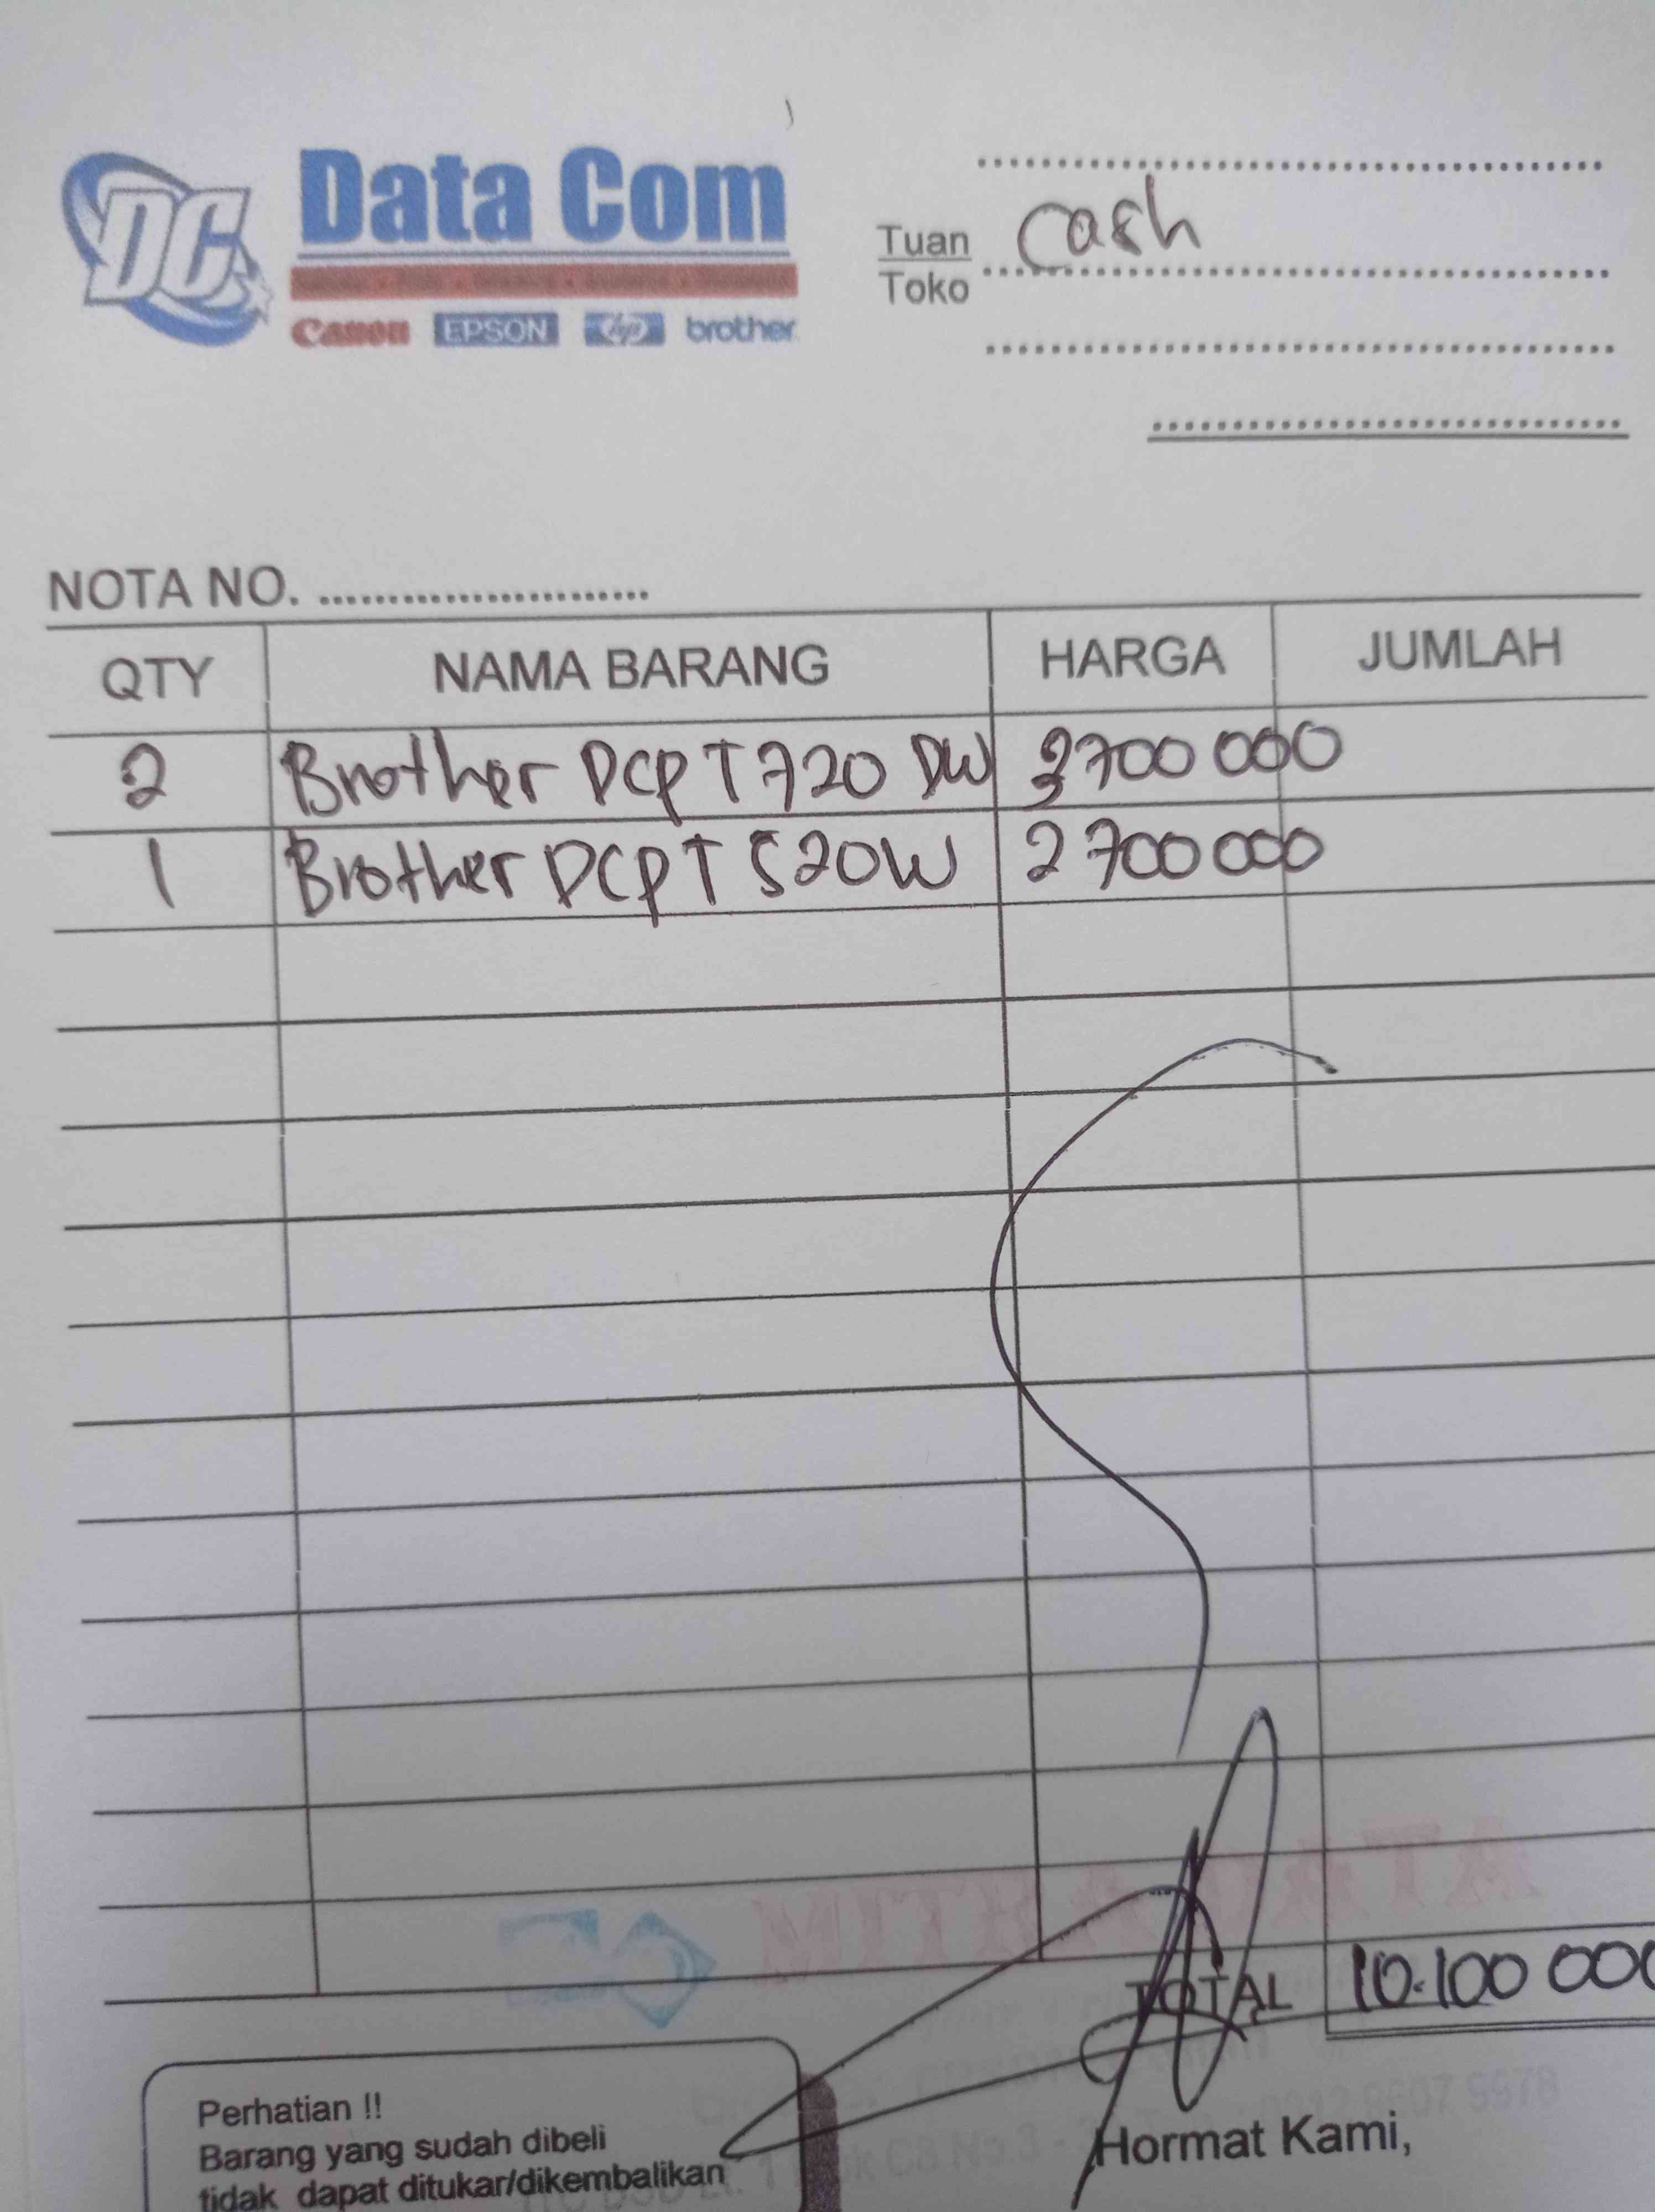 DC
Data Com
Canon EPSON hp brother
Tuan
Toko
cash
NOTA NO.
QTY NAMA BARANG HARGA JUMLAH
2 Brother DCP T720 DW 3700 000
1 Brother DCP T 520W 2 700 000
TOTAL 10.100 000
Perhatian !!
Barang yang sudah dibeli
tidak dapat ditukar/dikembalikan
Hormat Kami,